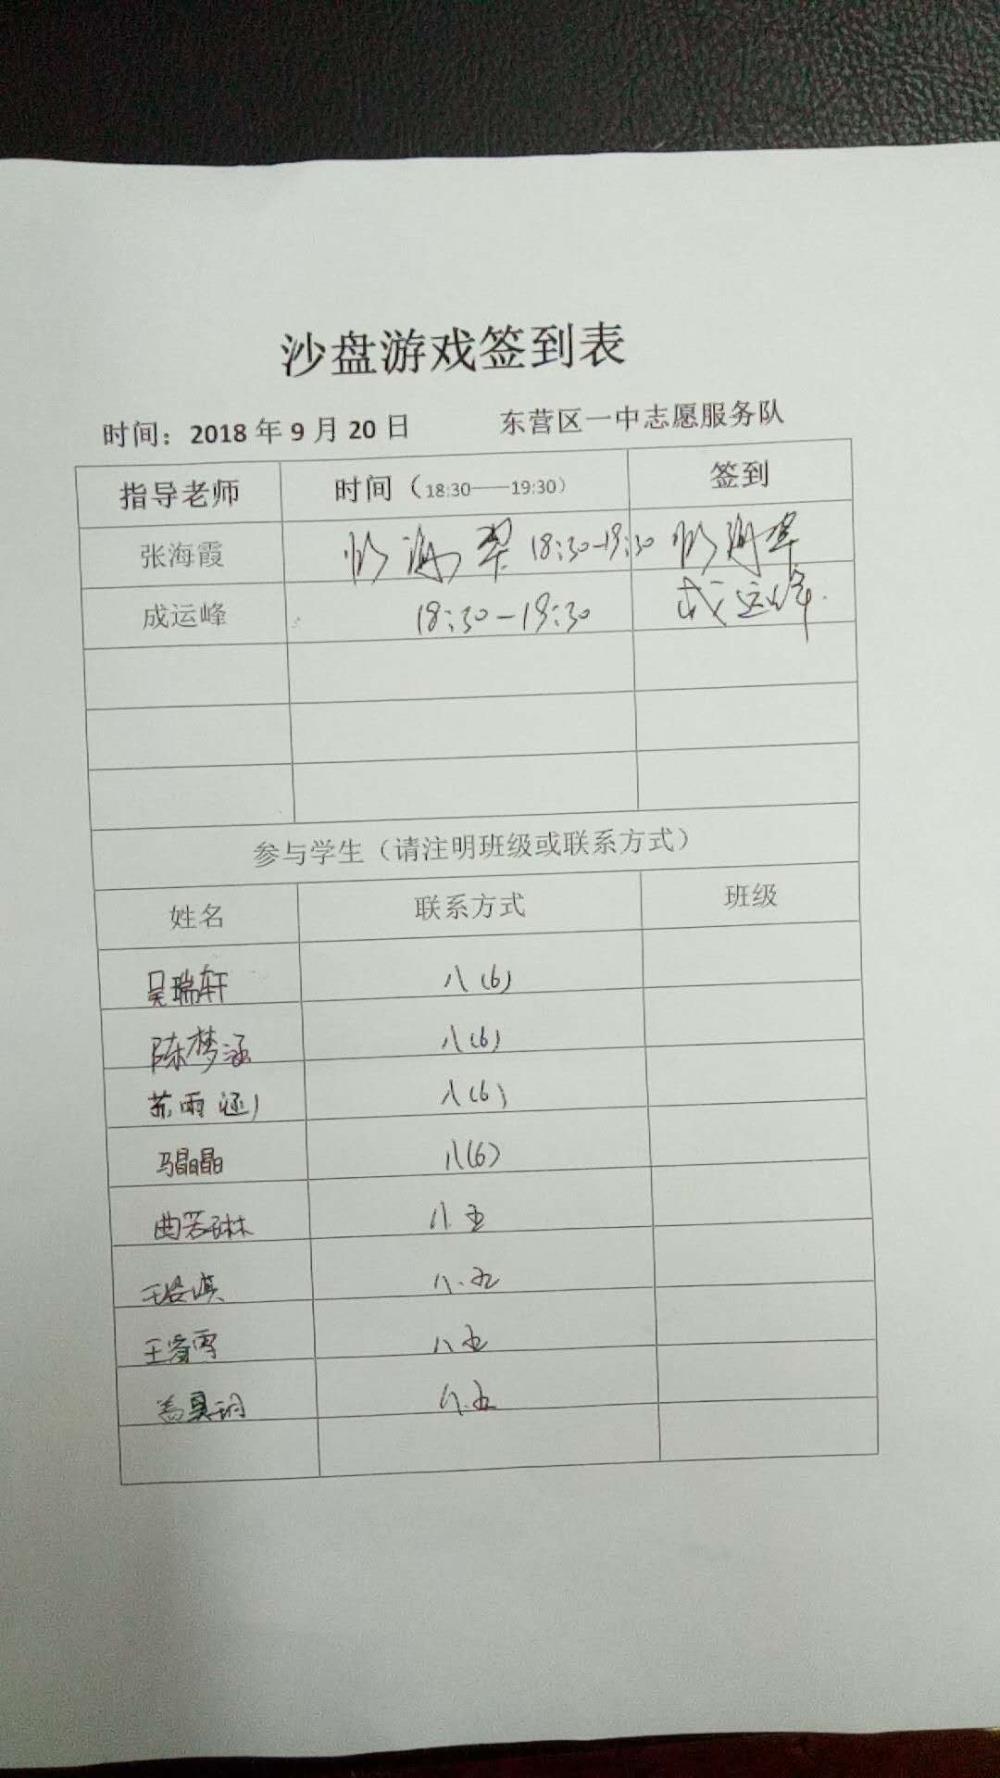 沙盘游戏签到表
时间：2018年9月20日 东营区一中志愿服务队
指导老师 时间（18:30——19:30） 签到
张海霞 18:30-19:30
成运峰 18:30-19:30 成运峰
参与学生（请注明班级或联系方式）
姓名 联系方式 班级
吴瑞轩 八(6)
陈梦涵 八(6)
苏雨涵 八(6)
马晶晶 八(6)
曲若琳 八五
八.五
王睿雪 八五
八.五